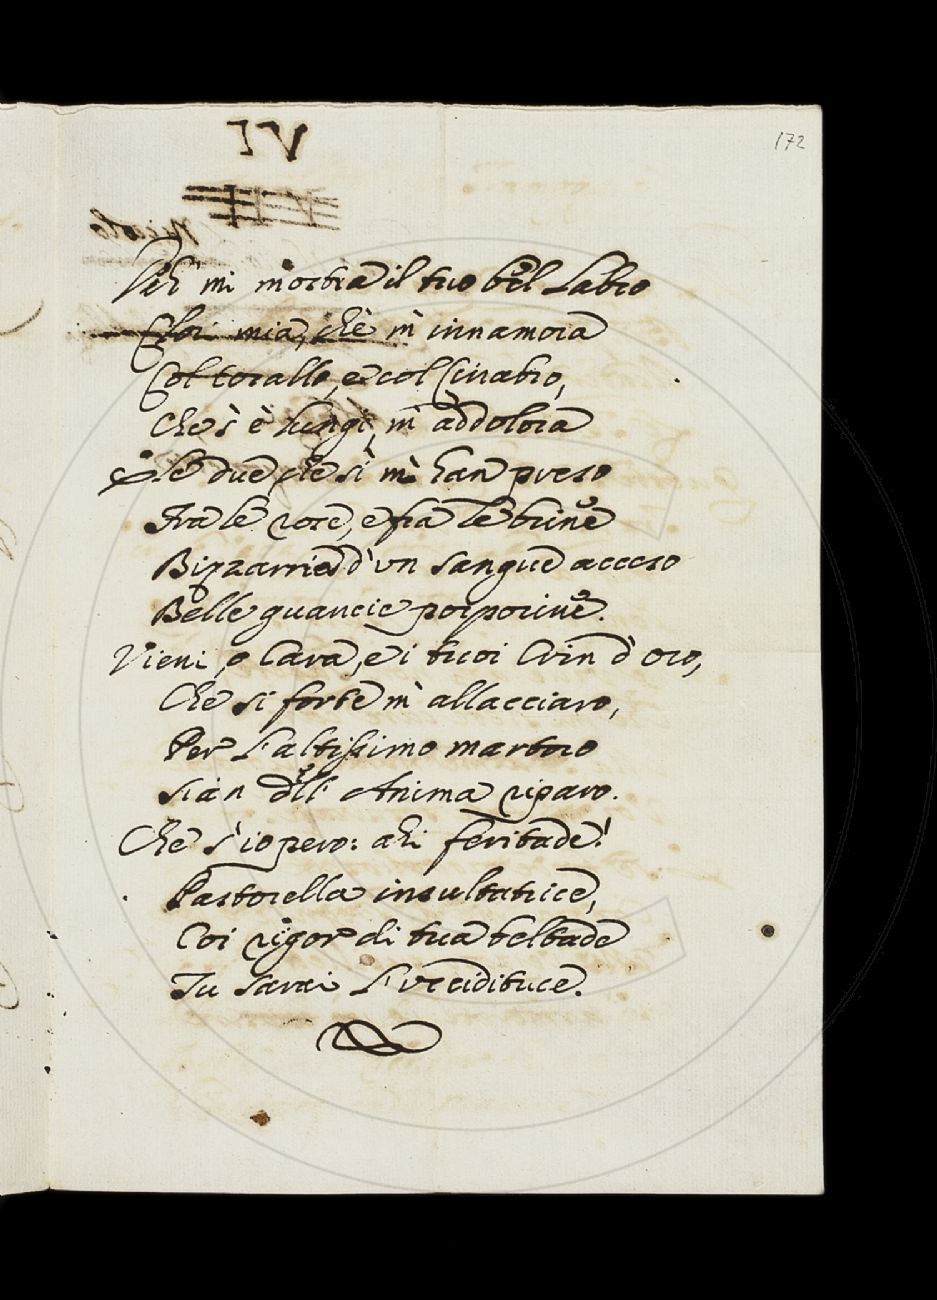 VI
172
Deh' mi mostra il tuo bel Labro
Clori mia, che m' innamora
Col corallo, e col Cinabro,
Che s' è lungi, m' addolora
E le due che sì mi han preso
Fra le rose, e fra le brine
Bizzarrie d' un sangue acceso
Belle guancie porporine.
Vieni, o Cara, e i tuoi Crin d' oro,
Che si forte m' allacciaro,
Per l' altissimo martoro
Sian dell' Anima riparo.
Che s' io pero: ahi feritade!
Pastorella insultatrice,
Coi rigor di tua beltade
Tu sarai l' vcciditrice.